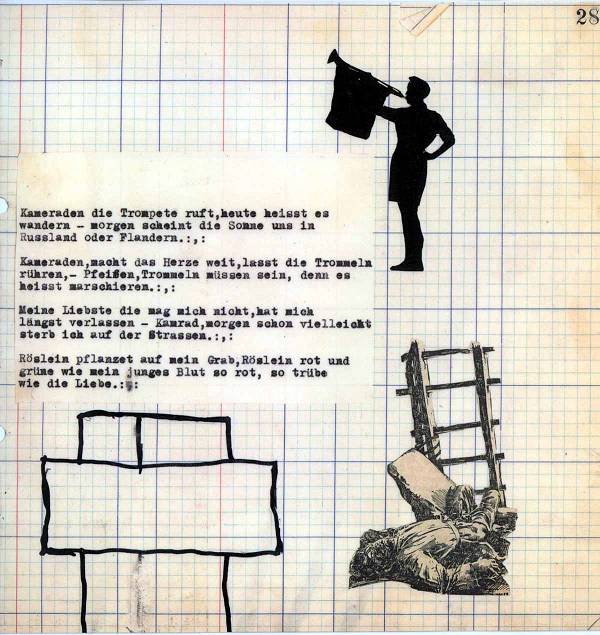 28
Kameraden die Trompete ruft,heute heisst es
wandern - morgen scheint die Sonne uns in
Russland oder Flandern.:,:
Kameraden,macht das Herze weit,lasst die Trommeln
rühren,- Pfeifen,Trommeln müssen sein, denn es
heisst marschieren.:,:
Meine Liebste die mag mich nicht,hat mich
längst verlassen - Kamrad,morgen schon vielleicht
sterb ich auf der Strassen.:,:
Röslein pflanzet auf mein Grab,Röslein rot und
grüne wie mein junges Blut so rot, so trübe
wie die Liebe.:,: